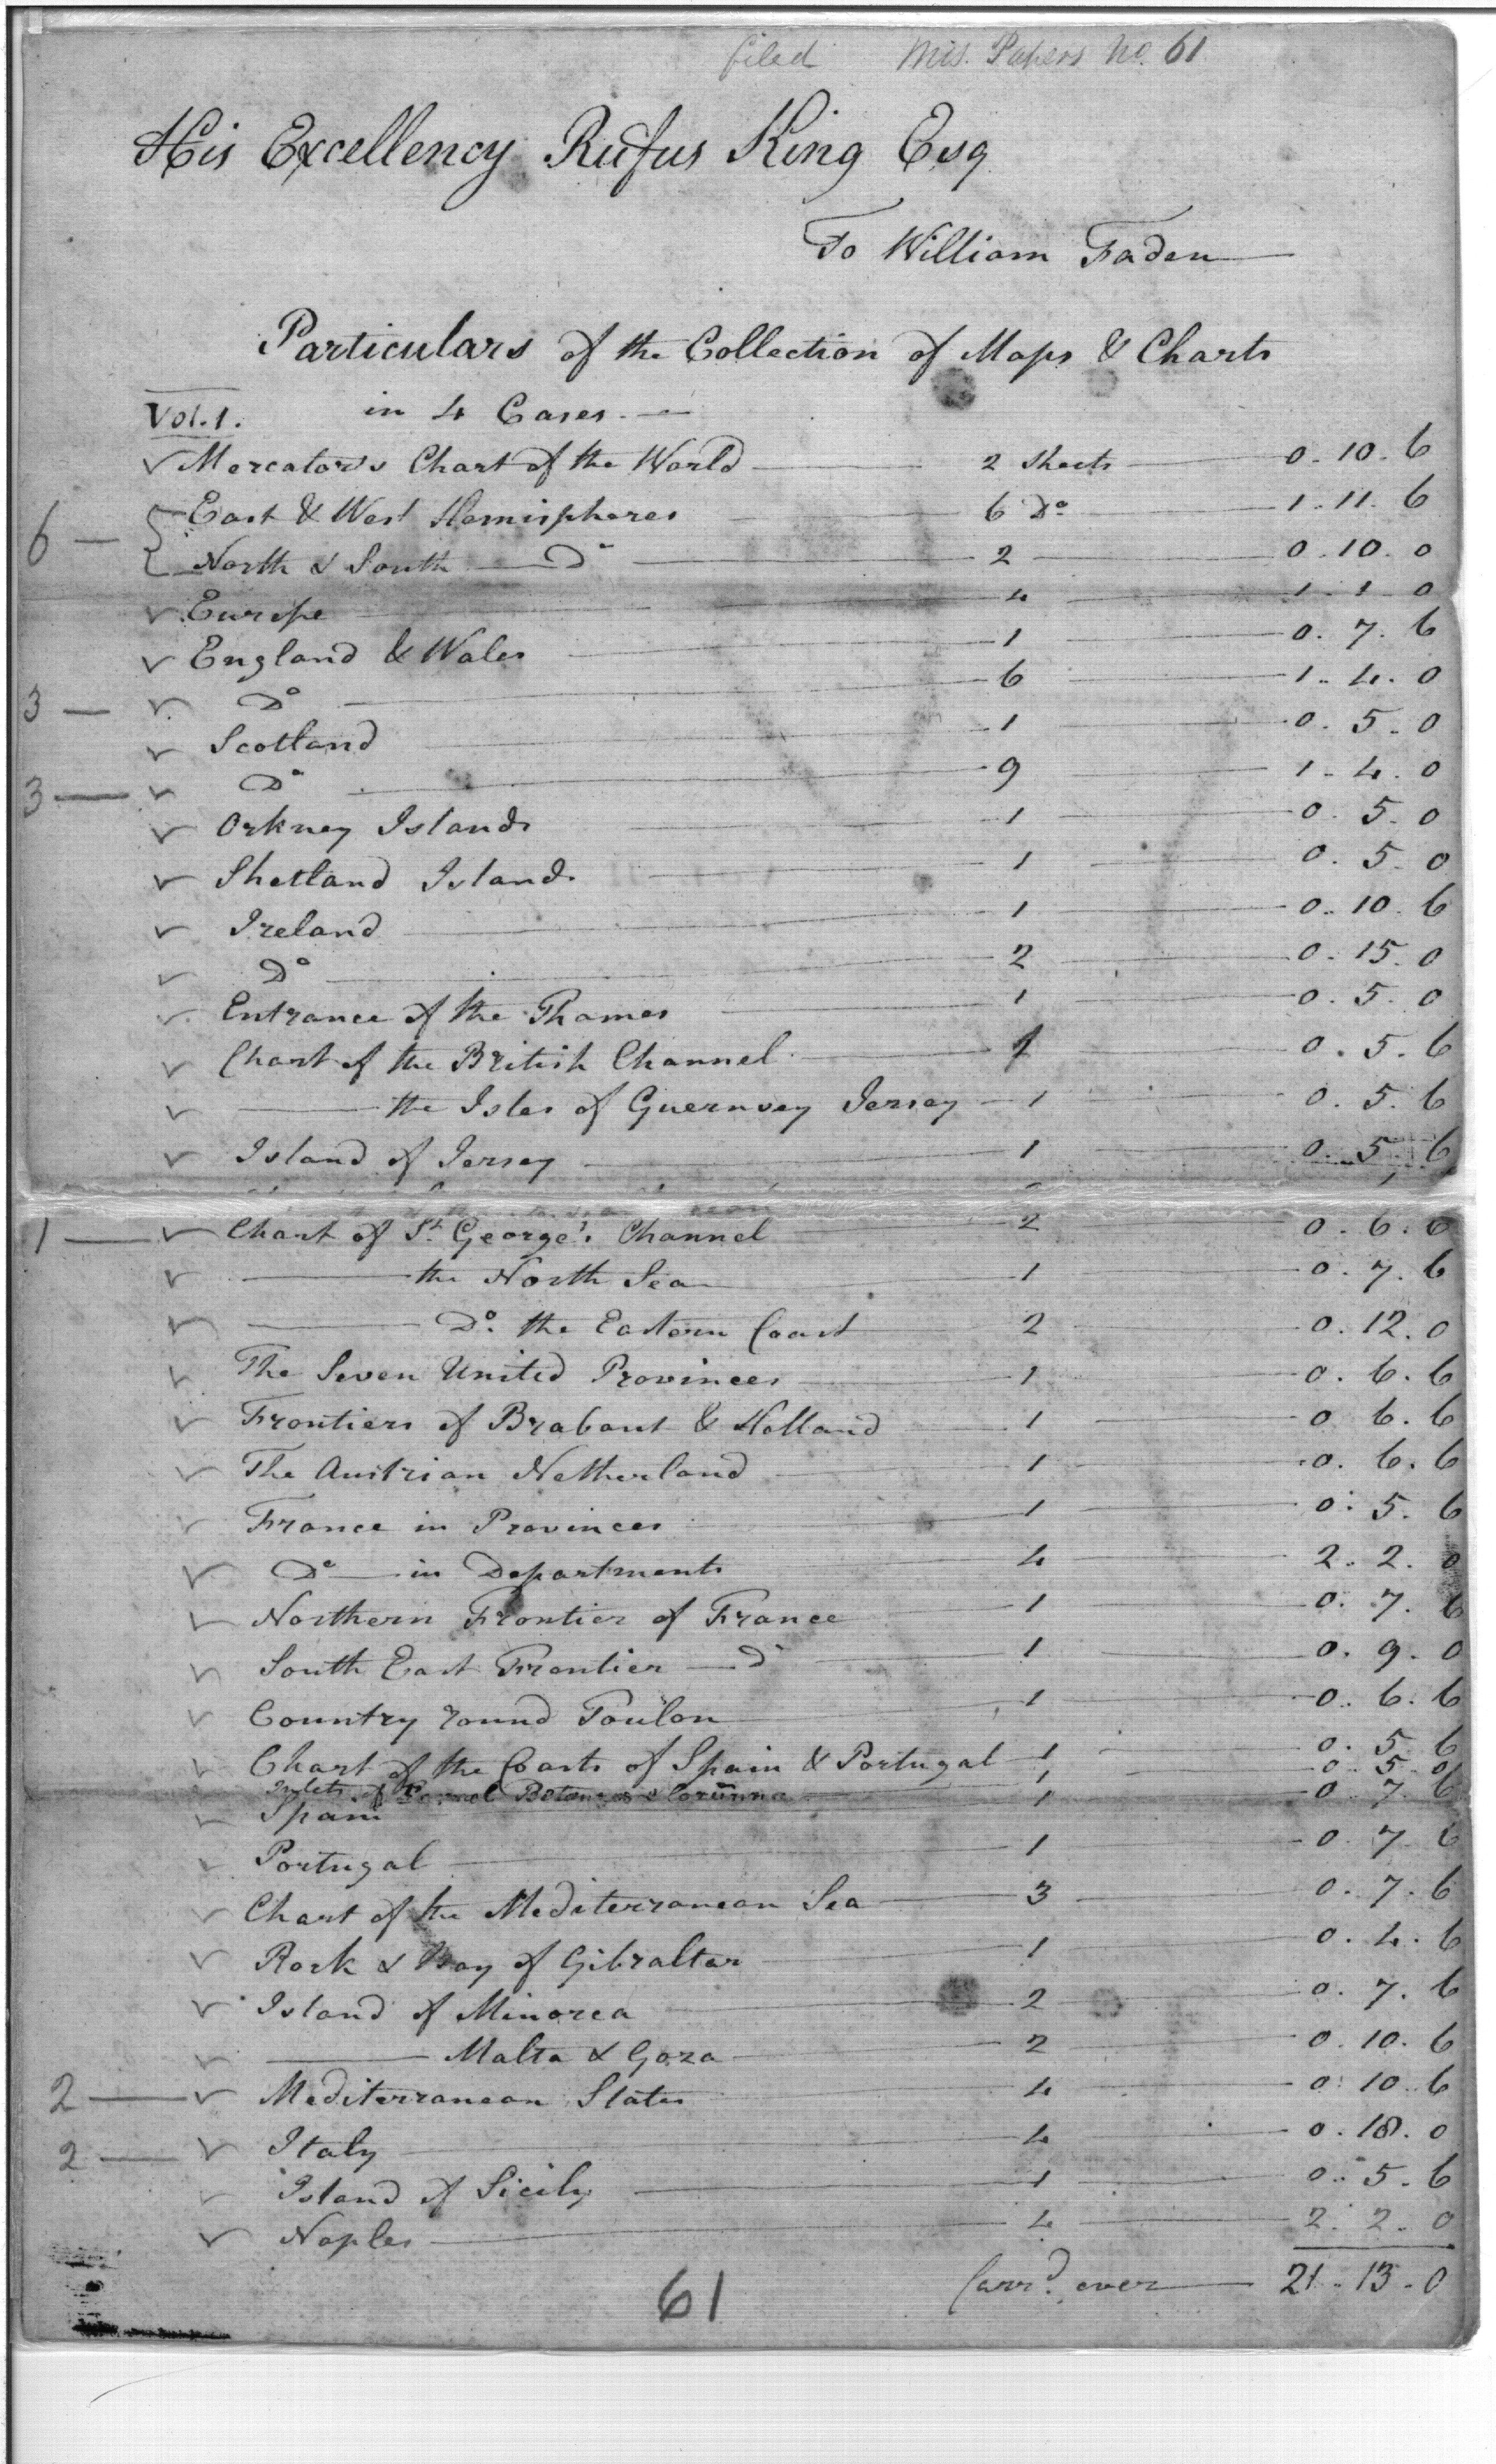 filed Mis. Papers No. 61
His Excellency Rufus King Esq
To William Faden
Particulars of the Collection of Maps & Charts
Vol. 1. in 4 Cases.
Mercator's Chart of the World 2 Sheets 0. 10. 6
6 East & West Hemispheres 6 Do. 1. 11. 6
North & South Do 2 0. 10. 0
Europe 4 1. 1. 0
England & Wales 1 0. 7. 6
3 Do 6 1. 4. 0
Scotland 1 0. 5. 0
3 Do 9 1. 4. 0
Orkney Islands 1 0. 5. 0
Shetland Islands 1 0. 5. 0
Ireland 1 0. 10. 6
Do 2 0. 15. 0
Entrance of the Thames 1 0. 5. 0
Chart of the British Channel 0. 5. 6
the Isles of Guernsey Jersey 1 0. 5. 6
Island of Jersey 1 0. 5. 6
1 Chart of St. George's Channel 2 0. 6. 6
the North Sea 1 0. 7. 6
Do. the Eastern Coast 2 0. 12. 0
The Seven United Provinces 1 0. 6. 6
Frontiers of Brabant & Holland 1 0 6. 6
The Austrian Netherland 1 0. 6. 6
France in Provinces 1 0. 5. 6
Do in Departments 4 2. 2. 0
Northern Frontier of France 1 0. 7. 6
South East Frontier Do 1 0. 9. 0
Country round Toulon 1 0. 6. 6
Chart of the Coasts of Spain & Portugal 1 0. 5 6
of & Corunna 1 0 5 0
Spain 1 0 7. 6
Portugal 1 0. 7 6
Chart of the Mediterranean Sea 3 0. 7. 6
Rock & Bay of Gibraltar 1 0. 4. 6
Island of Minorca 2 0. 7. 6
Malta & Goza 2 0. 10. 6
2 Mediterranean States 4 0. 10. 6
2 Italy 4 0. 18. 0
Island of Sicily 1 0. 5. 6
Naples 4 2. 2. 0
Carrd. over 21. 13. 0
61